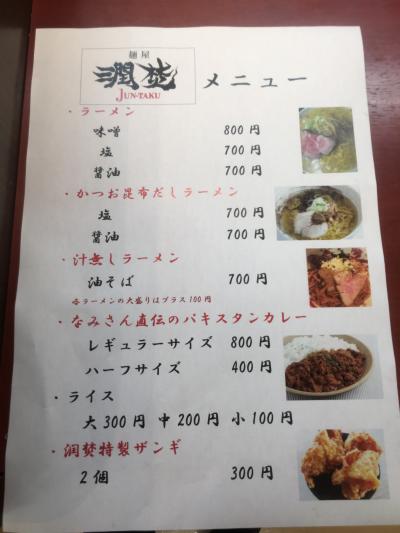 麺屋
潤焚
JUN-TAKU
メニュー
・ラーメン
味噌 800円
塩 700円
醤油 700円
・かつお昆布だしラーメン
塩 700円
醤油 700円
・汁無しラーメン
油そば 700円
各ラーメンの大盛りはプラス100円
・なみさん直伝のパキスタンカレー
レギュラーサイズ 800円
ハーフサイズ 400円
・ライス
大300円 中200円 小100円
・潤焚特製ザンギ
2個 300円